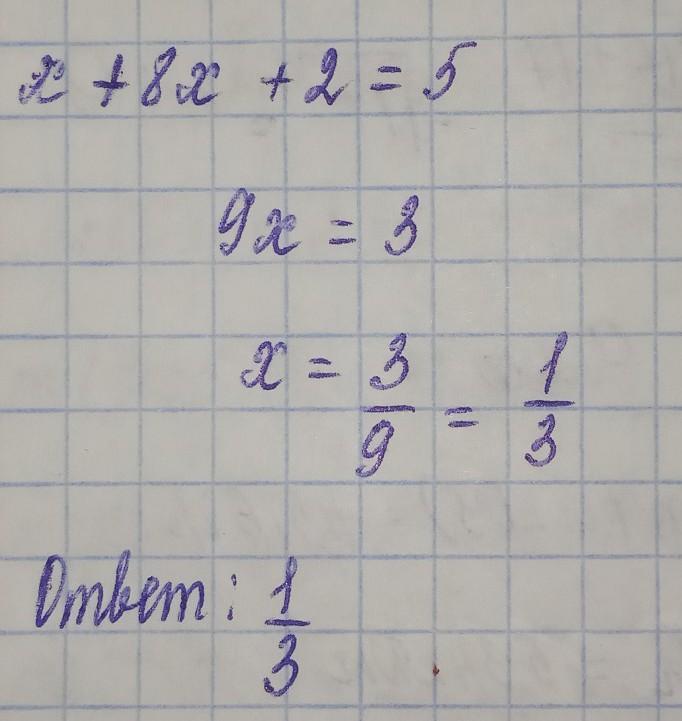 x + 8x + 2 = 5
9x = 3
x = 3/9 = 1/3
Ответ: 1/3